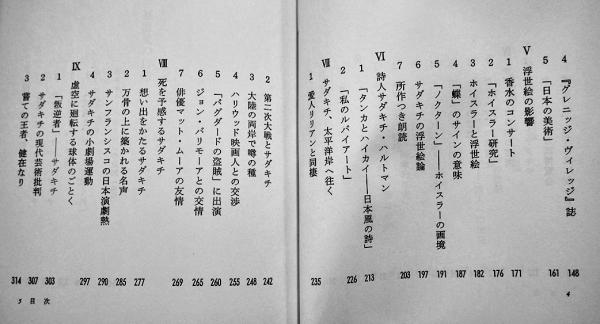 4 『グレニッジ・ヴィレッジ』誌 148
5 「日本の美術」 161
Ⅴ 浮世絵の影響
1 香水のコンサート 171
2 「ホイスラー研究」 176
3 ホイスラーと浮世絵 182
4 「蝶」のサインの意味 187
5 「ノクターン」――ホイスラーの画境 191
6 サダキチの浮世絵論 197
7 所作つき朗読 203
Ⅵ 詩人サダキチ・ハルトマン
1 「タンカとハイカイ――日本風の詩」 213
2 「私のルバイアート」 226
Ⅶ サダキチ、太平洋岸へ往く
1 愛人リリアンと同棲 235
4
2 第二次大戦とサダキチ 242
3 大陸の両岸で噂の種 248
4 ハリウッド映画人との交渉 255
5 「バグダードの盗賊」に出演 260
6 ジョン・バリモーアとの交情 265
7 俳優マット・ムーアの友情 269
Ⅷ 死を予感するサダキチ
1 想い出をかたるサダキチ 277
2 万骨の上に築かれる名声 285
3 サンフランシスコの日本演劇熱 290
4 サダキチの小劇場運動 297
Ⅸ 虚空に廻転する球体のごとく
1 「叛逆者」――サダキチ 303
2 サダキチの現代芸術批判 307
3 嘗ての王者、健在なり 314
5 目次